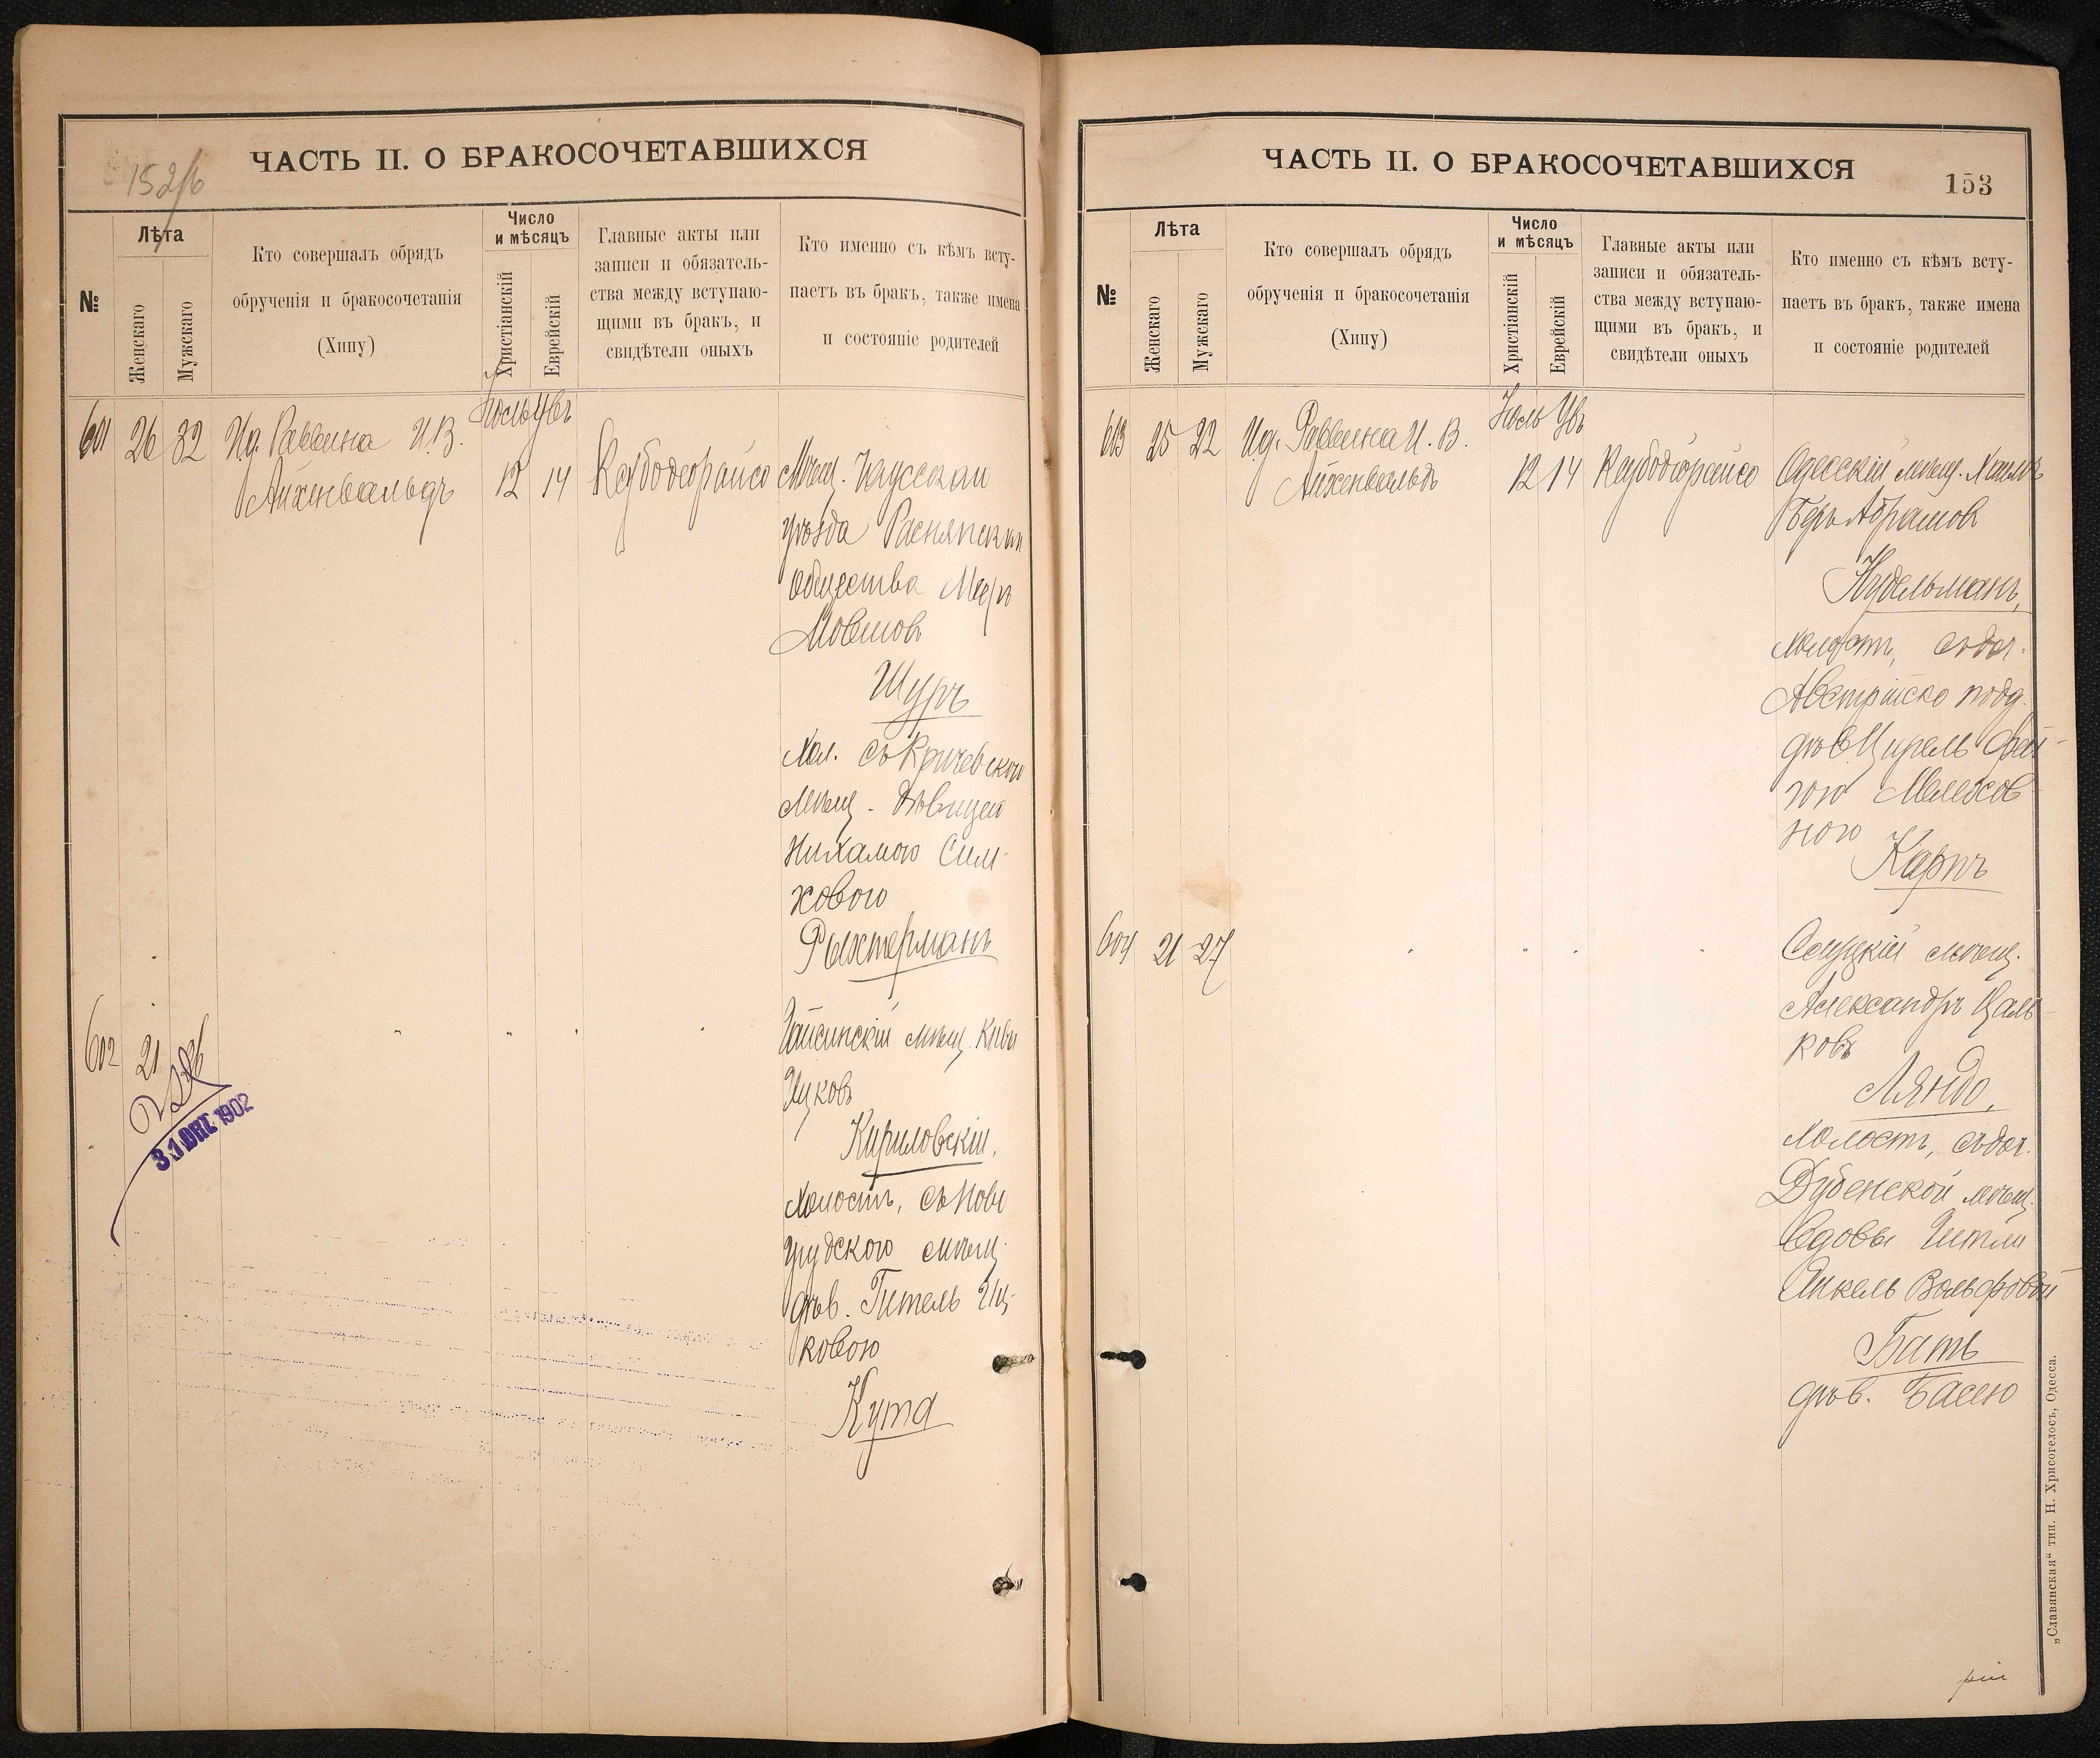 152/б
ЧАСТЬ II. О БРАКОСОЧЕТАВШИХСЯ
№
Лѣта
Женскаго
Мужскаго
Кто совершалъ обрядъ
обрученія и бракосочетанія
(Хипу)
Число
и мѣсяцъ
Христіанскій
Еврейскій
Главные акты или
записи и обязатель-
ства между вступаю-
щими въ бракъ, и
свидѣтели оныхъ
Кто именно съ кѣмъ всту-
паетъ въ бракъ, также имена
и состояніе родителей
601 26 32 И.д. Раввина И.В.
Айхенвальдъ
Іюль
12 14
Мѣщ.
уѣзда
общества Меер
Мовшов
Шуръ
Хол. съ Кричевскою
Мѣщ. дѣвицей
Нихамою Сим-
ховою
Рыхтерманъ
602 21 26
Гайсинскій мѣщ.
Ицковъ
Кириловскій,
Холостъ, съ Ново
грудскою мѣщ.
дѣв. Гитель Иц-
ковою
Кута
31 DEC 1902
ЧАСТЬ II. О БРАКОСОЧЕТАВШИХСЯ
153
№
Лѣта
Женскаго
Мужскаго
Кто совершалъ обрядъ
обрученія и бракосочетанія
(Хипу)
Число
и мѣсяцъ
Христіанскій
Еврейскій
Главные акты или
записи и обязатель-
ства между вступаю-
щими въ бракъ, и
свидѣтели оныхъ
Кто именно съ кѣмъ всту-
паетъ въ бракъ, также имена
и состояніе родителей
603 25 22 И.д. Раввина И. В.
Айхенвальдъ
Іюль
12 14
Одесскій мѣщ. Хаимъ
Беръ Абрамов
Нудельманъ,
холостъ, съ доч.
Австрійско подд.
дѣв. Цирель Фей-
гою Мелехов
ною
Карпъ
604 21 27
Слуцкій мѣщ.
Александръ Цаль-
ковъ
Ляндо,
Холостъ, съ доч.
Дубенской мѣщ.
вдовы
Вольфовой
Бать
дѣв. Басею
„Славянская“ тип. Н. Хрисогелосъ, Одесса.